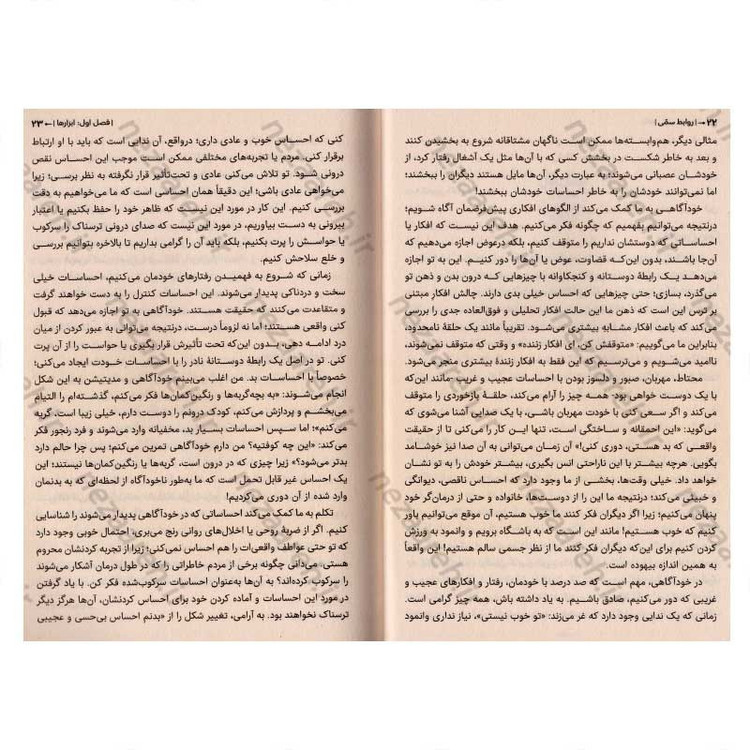 ۲۲ → | روابط سمّی |
مثالی دیگر، هم‌وابسته‌ها ممکن است ناگهان مشتاقانه شروع به بخشیدن کنند
و بعد به خاطر شکست در بخشش کسی که با آن‌ها مثل یک آشغال رفتار کرد، از
خودشان عصبانی می‌شوند؛ به عبارت دیگر، آن‌ها مایل هستند دیگران را ببخشند؛
اما نمی‌توانند خودشان را به خاطر احساسات خودشان ببخشند!
خودآگاهی به ما کمک می‌کند از الگوهای افکاری پیش‌فرضمان آگاه شویم؛
درنتیجه می‌توانیم بفهمیم که چگونه فکر می‌کنیم. هدف این نیست که افکار یا
احساساتی که دوستشان نداریم را متوقف کنیم، بلکه درعوض اجازه می‌دهیم که
آن‌جا باشند، بدون این‌که قضاوت، عوض یا آن‌ها را دور کنیم. این به تو اجازه
می‌دهد یک رابطهٔ دوستانه و کنجکاوانه با چیزهایی که درون بدن و ذهن تو
می‌گذرد، بسازی؛ حتی چیزهایی که احساس خیلی بدی دارند. چالش افکار مبتنی
بر ترس این است که ذهن ما این حالت افکار تحلیلی و فوق‌العاده جدی را بررسی
می‌کند که باعث افکار مشابه بیشتری می‌شود. تقریباً مانند یک حلقهٔ نامحدود،
بنابراین ما می‌گوییم: «متوقفش کن، ای افکار زننده» و وقتی که متوقف نمی‌شوند،
ناامید می‌شویم و می‌ترسیم که این فقط به افکار زنندهٔ بیشتری منجر می‌شود.
محتاط، مهربان، صبور و دلسوز بودن با احساسات عجیب و غریب مانند این‌که
با یک دوست خواهی بود: همه چیز را آرام می‌کند، حلقهٔ بازخوردی را متوقف
می‌کند و اگر سعی کنی با خودت مهربان باشی، با یک صدایی آشنا می‌شوی که
می‌گوید: «این احمقانه و ساختگی است، تنها این کار را می‌کنی تا از حقیقت
واقعی که بد هستی، دوری کنی!» آن زمان می‌توانی به آن صدا نیز خوشامد
بگویی. هرچه بیشتر با این ناراحتی انس بگیری، بیشتر خودش را به تو نشان
خواهد داد. خیلی وقت‌ها، بخشی از ما وجود دارد که احساس ناقصی، دیوانگی
و خبیثی می‌کند؛ درنتیجه ما این را از دوست‌ها، خانواده و حتی از درمان‌گر خود
پنهان می‌کنیم؛ زیرا اگر دیگران فکر کنند ما خوب هستیم، آن موقع می‌توانیم باور
کنیم که خوب هستیم! مانند این است که به باشگاه برویم و وانمود به ورزش
کردن کنیم برای این‌که دیگران فکر کنند ما از نظر جسمی سالم هستیم! این واقعاً
به همین اندازه بیهوده است.
در خودآگاهی، مهم است که صد درصد با خودمان، رفتار و افکارهای عجیب و
غریبی که دور می‌کنیم، صادق باشیم. به یاد داشته باش، همه چیز گرامی است.
زمانی که یک ندایی وجود دارد که غر می‌زند: «تو خوب نیستی»، نیاز نداری وانمود
| فصل اول: ابزارها | ← ۲۳
کنی که احساس خوب و عادی داری؛ درواقع، آن ندایی است که باید با او ارتباط
برقرار کنی. مردم یا تجربه‌های مختلفی ممکن است موجب این احساس نقص
درونی شود. تو تلاش می‌کنی عادی و تحت‌تأثیر قرار نگرفته به نظر برسی؛ زیرا
می‌خواهی عادی باشی؛ این دقیقاً همان احساسی است که ما می‌خواهیم به دقت
بررسی کنیم. این کار در مورد این نیست که ظاهر خود را حفظ بکنیم یا اعتبار
بیرونی به دست بیاوریم، در مورد این نیست که صدای درونی ترسناک را سرکوب
یا حواسش را پرت بکنیم، بلکه باید آن را گرامی بداریم تا بالاخره بتوانیم بررسی
و خلع سلاحش کنیم.
زمانی که شروع به فهمیدن رفتارهای خودمان می‌کنیم، احساسات خیلی
سخت و دردناکی پدیدار می‌شوند. این احساسات کنترل را به دست خواهند گرفت
و متقاعدت می‌کنند که حقیقت هستند. خودآگاهی به تو اجازه می‌دهد که قبول
کنی واقعی هستند؛ اما نه لزوماً درست، درنتیجه می‌توانی به عبور کردن از میان
درد ادامه دهی، بدون این‌که تحت تأثیرش قرار بگیری یا حواست را از آن پرت
کنی. تو در اصل یک رابطهٔ دوستانهٔ نادر را با احساسات خودت ایجاد می‌کنی؛
خصوصاً با احساسات بد. من اغلب می‌بینم خودآگاهی و مدیتیشن به این شکل
انجام می‌شوند: «به بچه‌گربه‌ها و رنگین‌کمان‌ها فکر می‌کنم، گذشته‌ام را التیام
می‌بخشم و پردازش می‌کنم، کودک درونم را دوست دارم، خیلی زیبا است، گریه
می‌کنم»؛ اما سپس احساسات بسیار بد، مخفیانه وارد می‌شوند و فرد رنجور فکر
می‌کند: «این چه کوفتیه؟ من دارم خودآگاهی تمرین می‌کنم؛ پس چرا حالم دارد
بدتر می‌شود؟» زیرا چیزی که در درون است، گربه‌ها یا رنگین‌کمان‌ها نیستند؛ این
یک احساس غیر قابل تحمل است که ما به‌طور ناخودآگاه از لحظه‌ای که به بدنمان
وارد شده از آن دوری می‌کردیم!
تکلم به ما کمک می‌کند احساساتی که در خودآگاهی پدیدار می‌شوند را شناسایی
کنیم. اگر از ضربهٔ روحی یا اخلال‌های روانی رنج می‌بری، احتمال خوبی وجود دارد
که تو حتی عواطف واقعی‌ات را هم احساس نمی‌کنی؛ زیرا از تجربه کردنشان محروم
هستی. می‌دانی چگونه برخی از مردم خاطراتی را که در طول درمان آشکار می‌شوند
را سرکوب کرده‌اند؟ به آن‌ها به‌عنوان احساسات سرکوب‌شده فکر کن. با یاد گرفتن
در مورد این احساسات و آماده کردن خود برای احساس کردنشان، آن‌ها هرگز دیگر
ترسناک نخواهند بود. به آرامی، تغییر شکل را از «بدنم احساس بی‌حسی و عجیبی